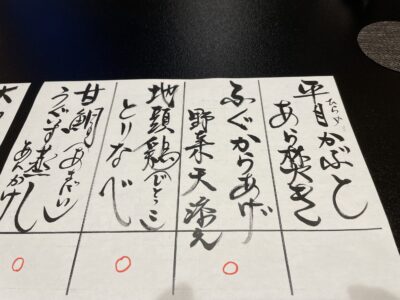 平目かぶと
あら焚き
ふぐからあげ
野菜天添え
地頭鶏(じとっこ)
とりなべ
甘鯛(あまだい)
うぐいす蒸し
あんかけ